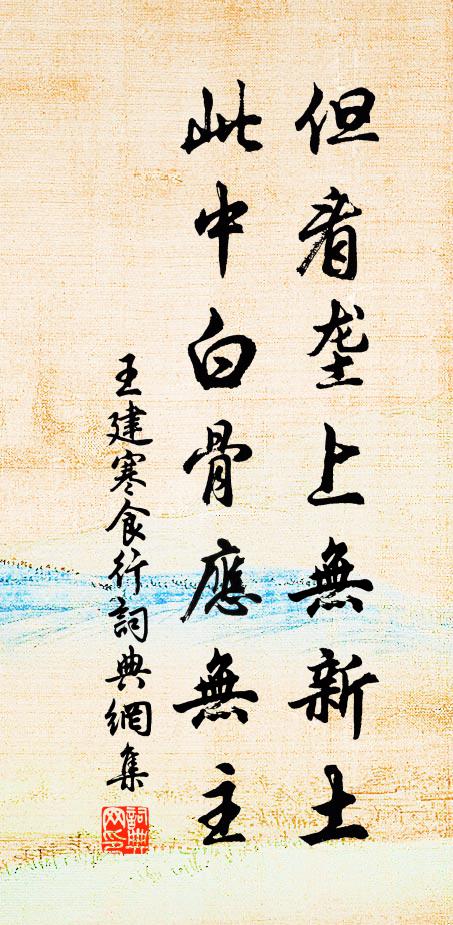 但看垄上無新土
此中白骨應無主
王建寒食行詞典網集
詞典网印